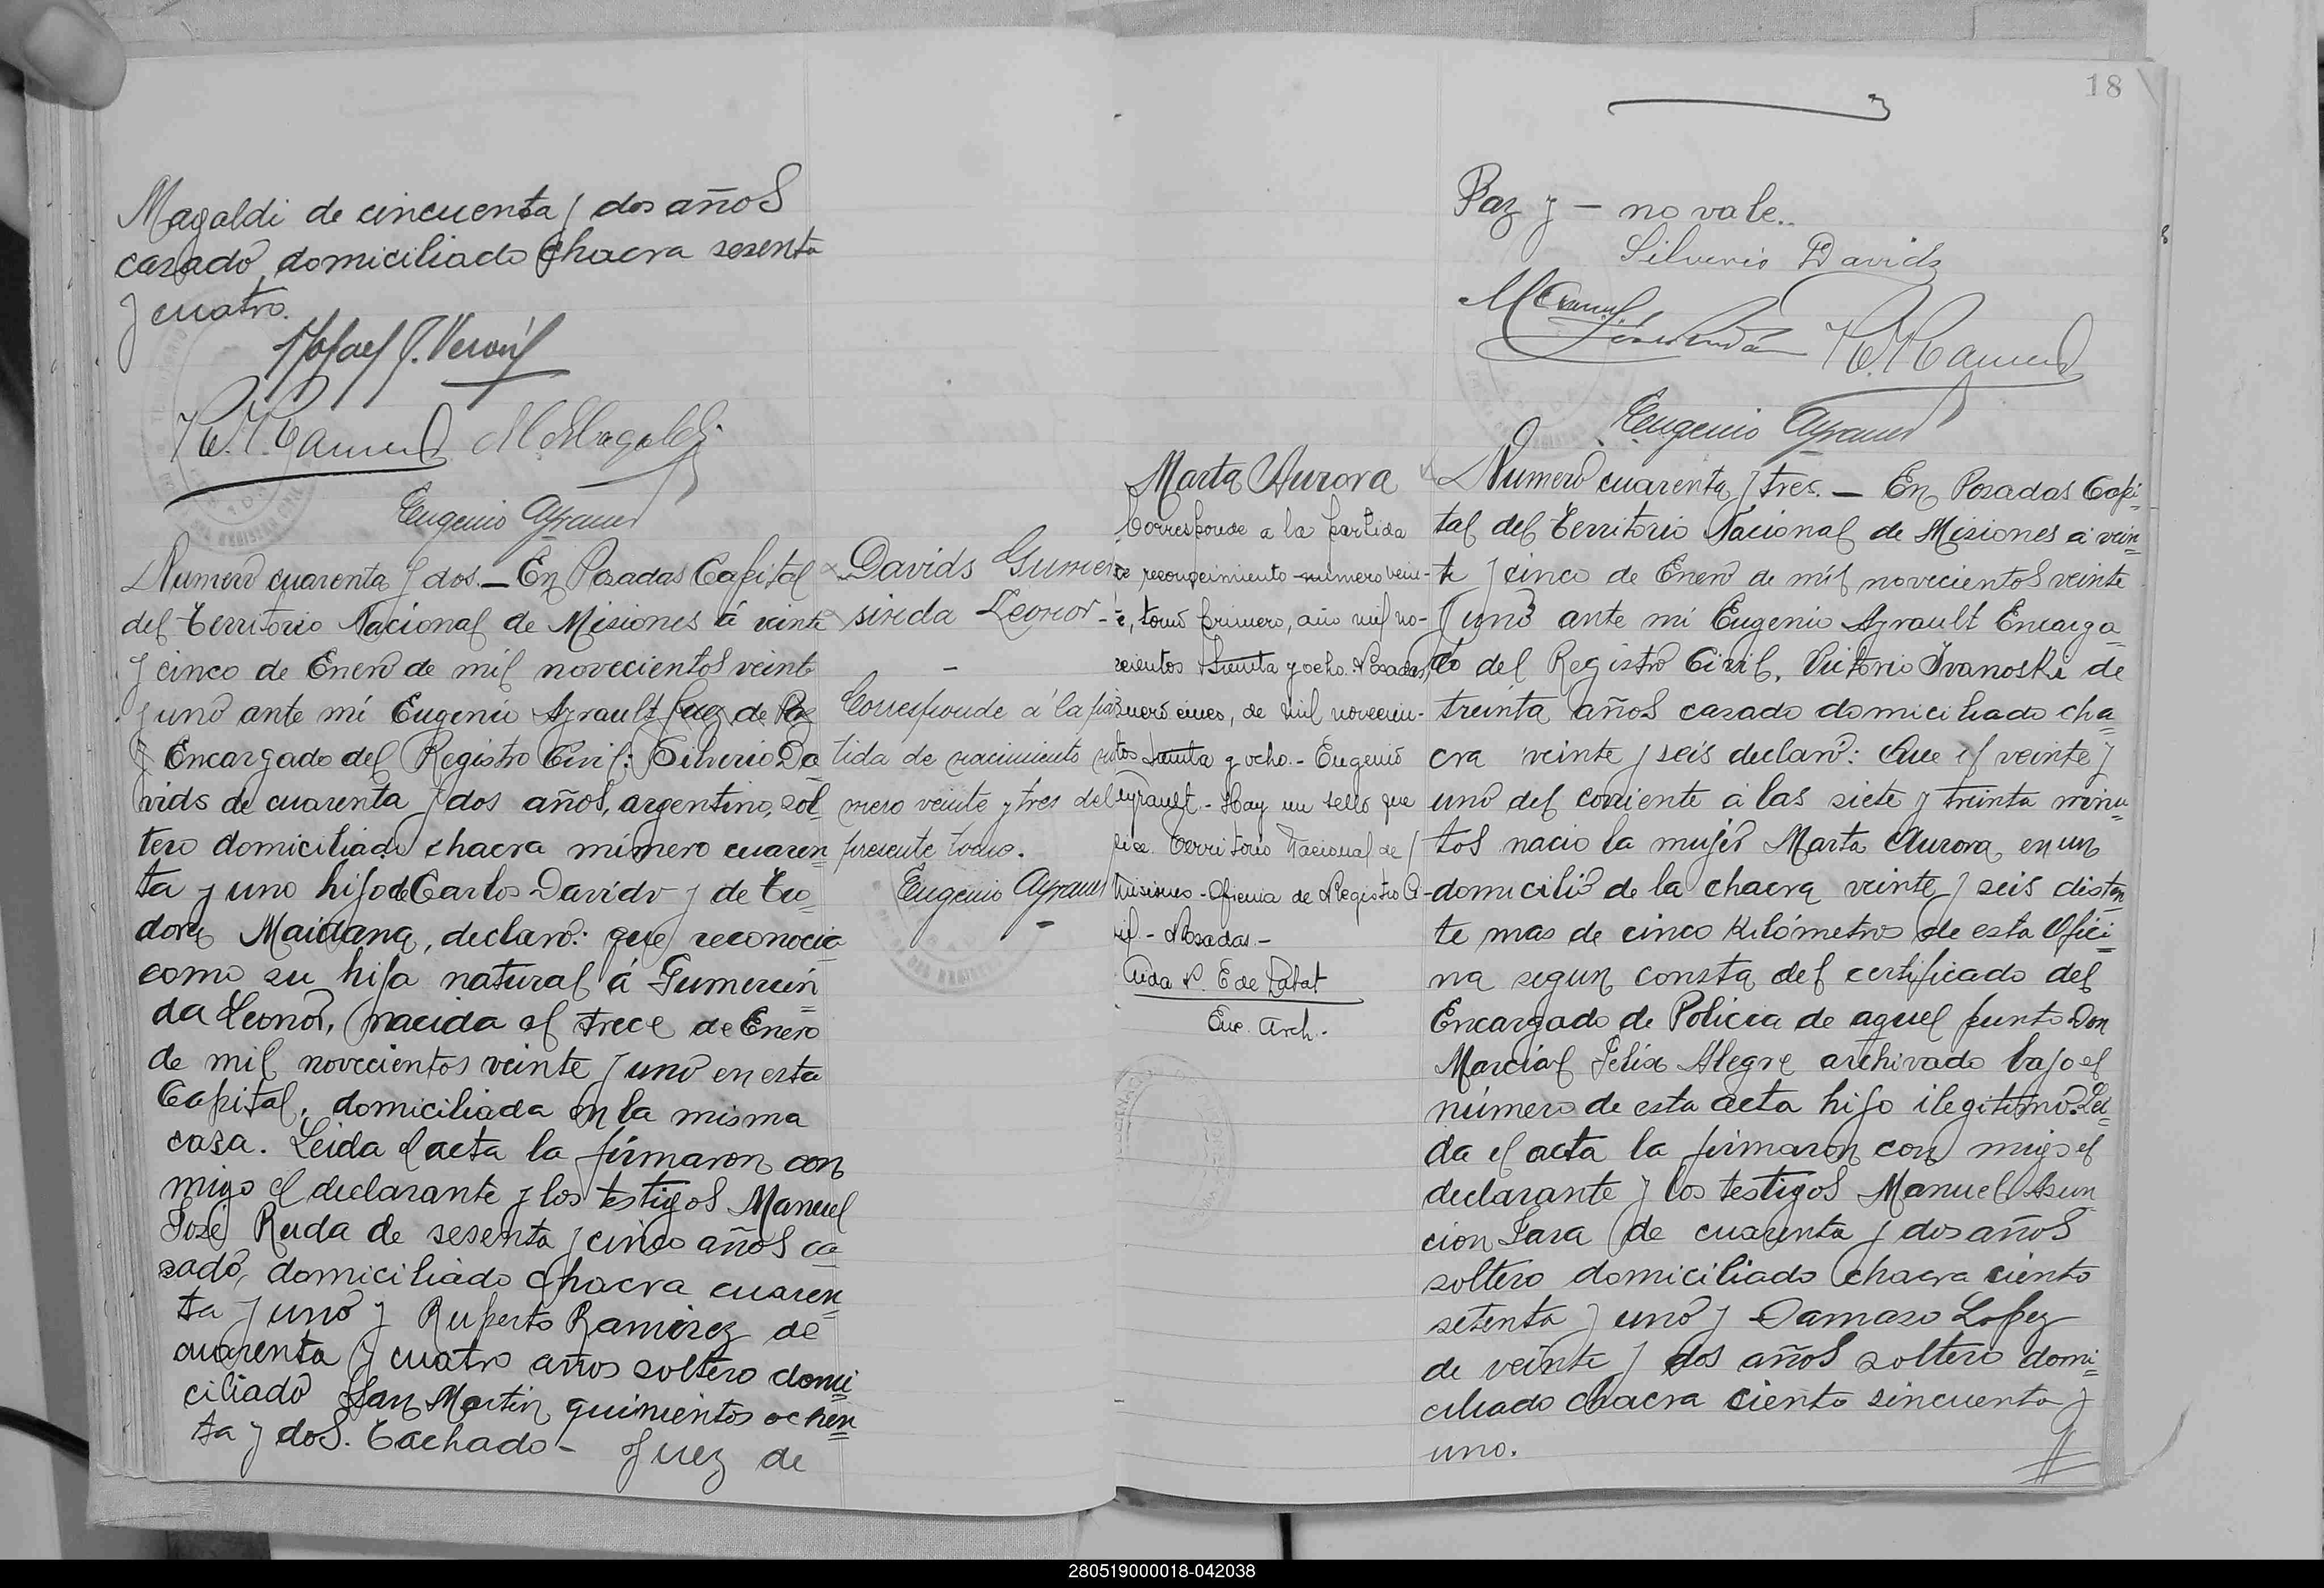 Magaldi de cincuenta y dos años
casado, domiciliado Chacra sesenta
y cuatro.
Rafael
R. Ramirez M. Magaldi
Eugenio Ayrault
Numero cuarenta y dos. — En Posadas Capital
del Territorio Nacional de Misiones á veinte
y cinco de Enero de mil novecientos veinte
y uno ante mi Eugenio Ayrault Juez de Paz
y Encargado del Registro Civil: Silverio Da
vids de cuarenta y dos años, argentino, sol
tero domiciliado chacra número cuaren
ta y uno hijo de Carlos Davids y de Teo
dora Maidana, declaró: que reconocia
como su hija natural á Gumersin
da Leonor, nacida el trece de Enero
de mil novecientos veinte y uno en esta
Capital, domiciliada en la misma
casa. Leida el acta la firmaron con
migo el declarante y los testigos Manuel
José Ruda de sesenta y cinco años ca
sado, domiciliado chacra cuaren
ta y uno y Ruperto Ramirez de
cuarenta y cuatro años soltero domi
ciliado San Martin quinientos ochen
ta y dos. Tachado - Juez de
Davids Gumer
sinda Leonor -
-
Corresponde á la par
tida de nacimiento nú
mero veinte y tres del
presente tomo.
Eugenio Ayrault
18
Paz y — no vale..
Silverio Davids
R. Ramirez
Eugenio Ayrault
Marta Aurora
Corresponde a la partida
de reconocimiento numero vein-
te, tomo primero, año mil no-
vecientos treinta y ocho. Posadas,
enero cinco, de mil novecien-
tos treinta y ocho. - Eugenio
Ayrault - Hay un sello que
dice. Territorio Nacional de
Misiones - Oficina de Registro Ci-
vil - Posadas -
Aida P. E de Labat
Enc. Arch.
Numero cuarenta y tres. — En Posadas Capi
tal del Territorio Nacional de Misiones á vein
te y cinco de Enero de mil novecientos veinte
y uno ante mi Eugenio Ayrault Encarga
do del Registro Civil, Victorio Ivanoski de
treinta años casado domiciliado cha
cra veinte y seis declaró: Que el veinte y
uno del corriente á las siete y treinta minu
tos nacio la mujer Marta Aurora, en un
domicilio de la chacra veinte y seis distan
te mas de cinco Kilómetros de esta Ofici
na segun consta del certificado del
Encargado de Policia de aquel punto Don
Marcial Felix Alegre archivado bajo el
número de esta acta hijo ilegitimo. Lei
da el acta la firmaron con migo el
declarante y los testigos Manuel Asun
cion Lara de cuarenta y dos años
soltero domiciliado chacra ciento
setenta y uno y Damaso Lopez
de veinte y dos años soltero domi
ciliado chacra ciento sincuenta y
uno.
280519000018-042038